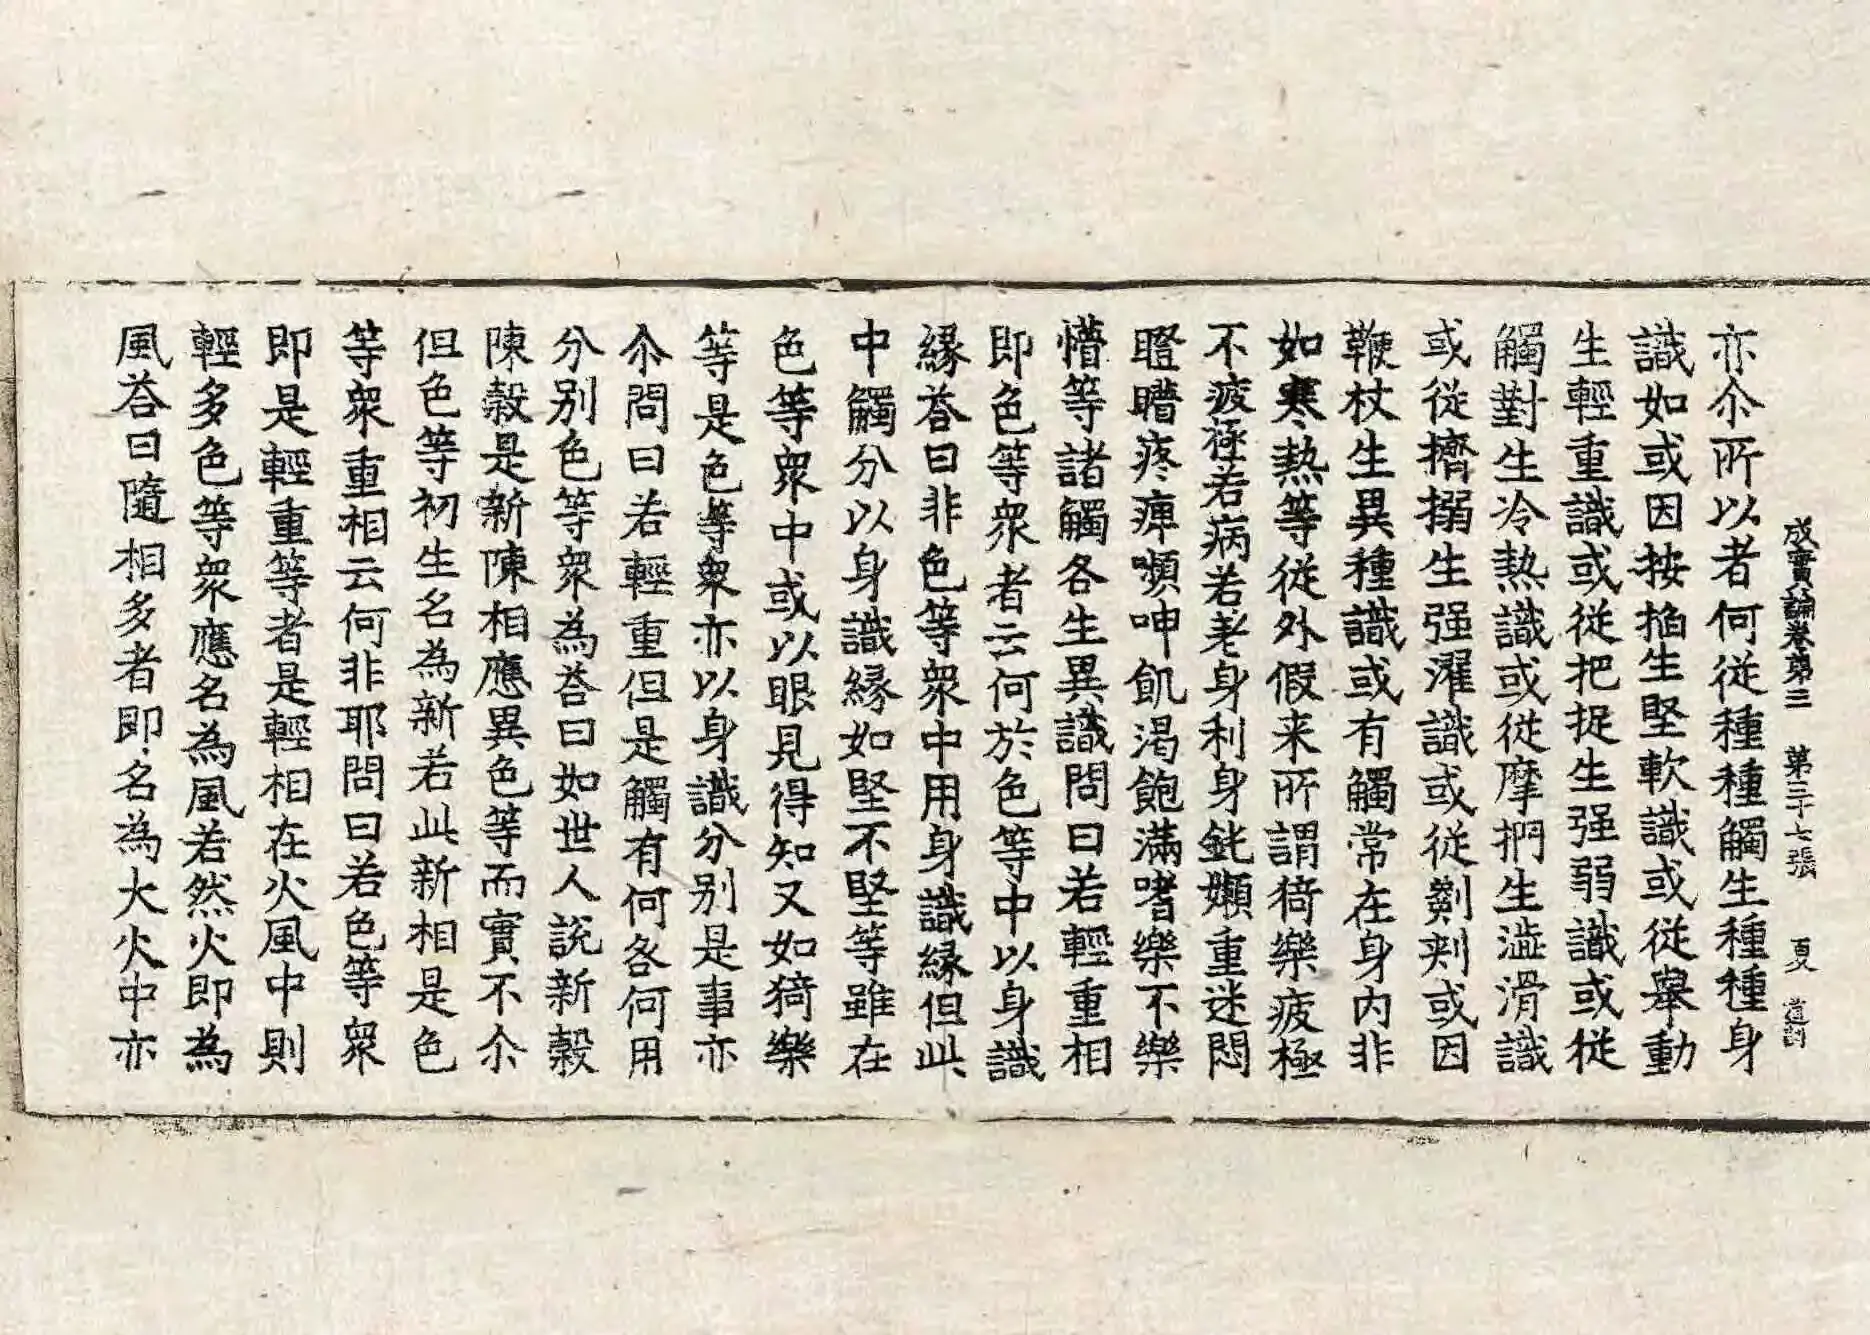 成實論卷第三 第二十七張 夏
亦尒所以者何從種種觸生種種身
識如或因按掐生堅軟識或從舉動
生輕重識或從把捉生强弱識或從
觸對生冷熱識或從摩捫生澁滑識
或從擠搦生强濯識或從劗刾或因
鞭杖生異種識或有觸常在身內非
如寒熱等從外假来所謂猗樂疲極
不疲極若病若老身利身鈍嬾重迷悶
瞪瞢疼痺嚬呻飢渴飽滿嗜樂不樂
懵等諸觸各生異識問曰若輕重相
即色等衆者云何於色等中以身識
緣荅曰非色等衆中用身識緣但此
中觸分以身識緣如堅不堅等雖在
色等衆中或以眼見得知又如猗樂
等是色等衆亦以身識分別是事亦
尒問曰若輕重但是觸有何各何用
分別色等衆為荅曰如世人說新穀
陳穀是新陳相應異色等而實不尒
但色等初生名為新若此新相是色
等衆重相云何非耶問曰若色等衆
即是輕重等者是輕相在火風中則
輕多色等衆應名為風若然火即為
風荅曰隨相多者即名為大火中亦